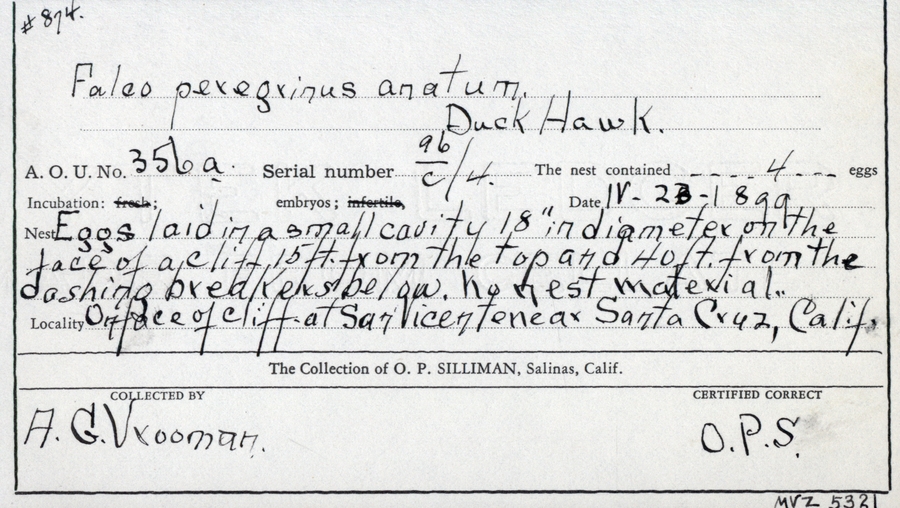 #874.
Falco peregrinus anatum.
Duck Hawk.
A. O. U. No. 356a. Serial number 96/c/4. The nest contained ---- 4 --- eggs
Incubation: fresh; embryos; infertile, Date IV-23-1899.
Nest Eggs laid in a small cavity 18" in diameter on the
face of a cliff, 15 ft. from the top and 40 ft. from the
dashing breakers below. No nest material.
Locality On face of cliff at San Vicente near Santa Cruz, Calif.
The Collection of O. P. SILLIMAN, Salinas, Calif.
COLLECTED BY CERTIFIED CORRECT
A. G. Vrooman. O.P.S.
MVZ 5321